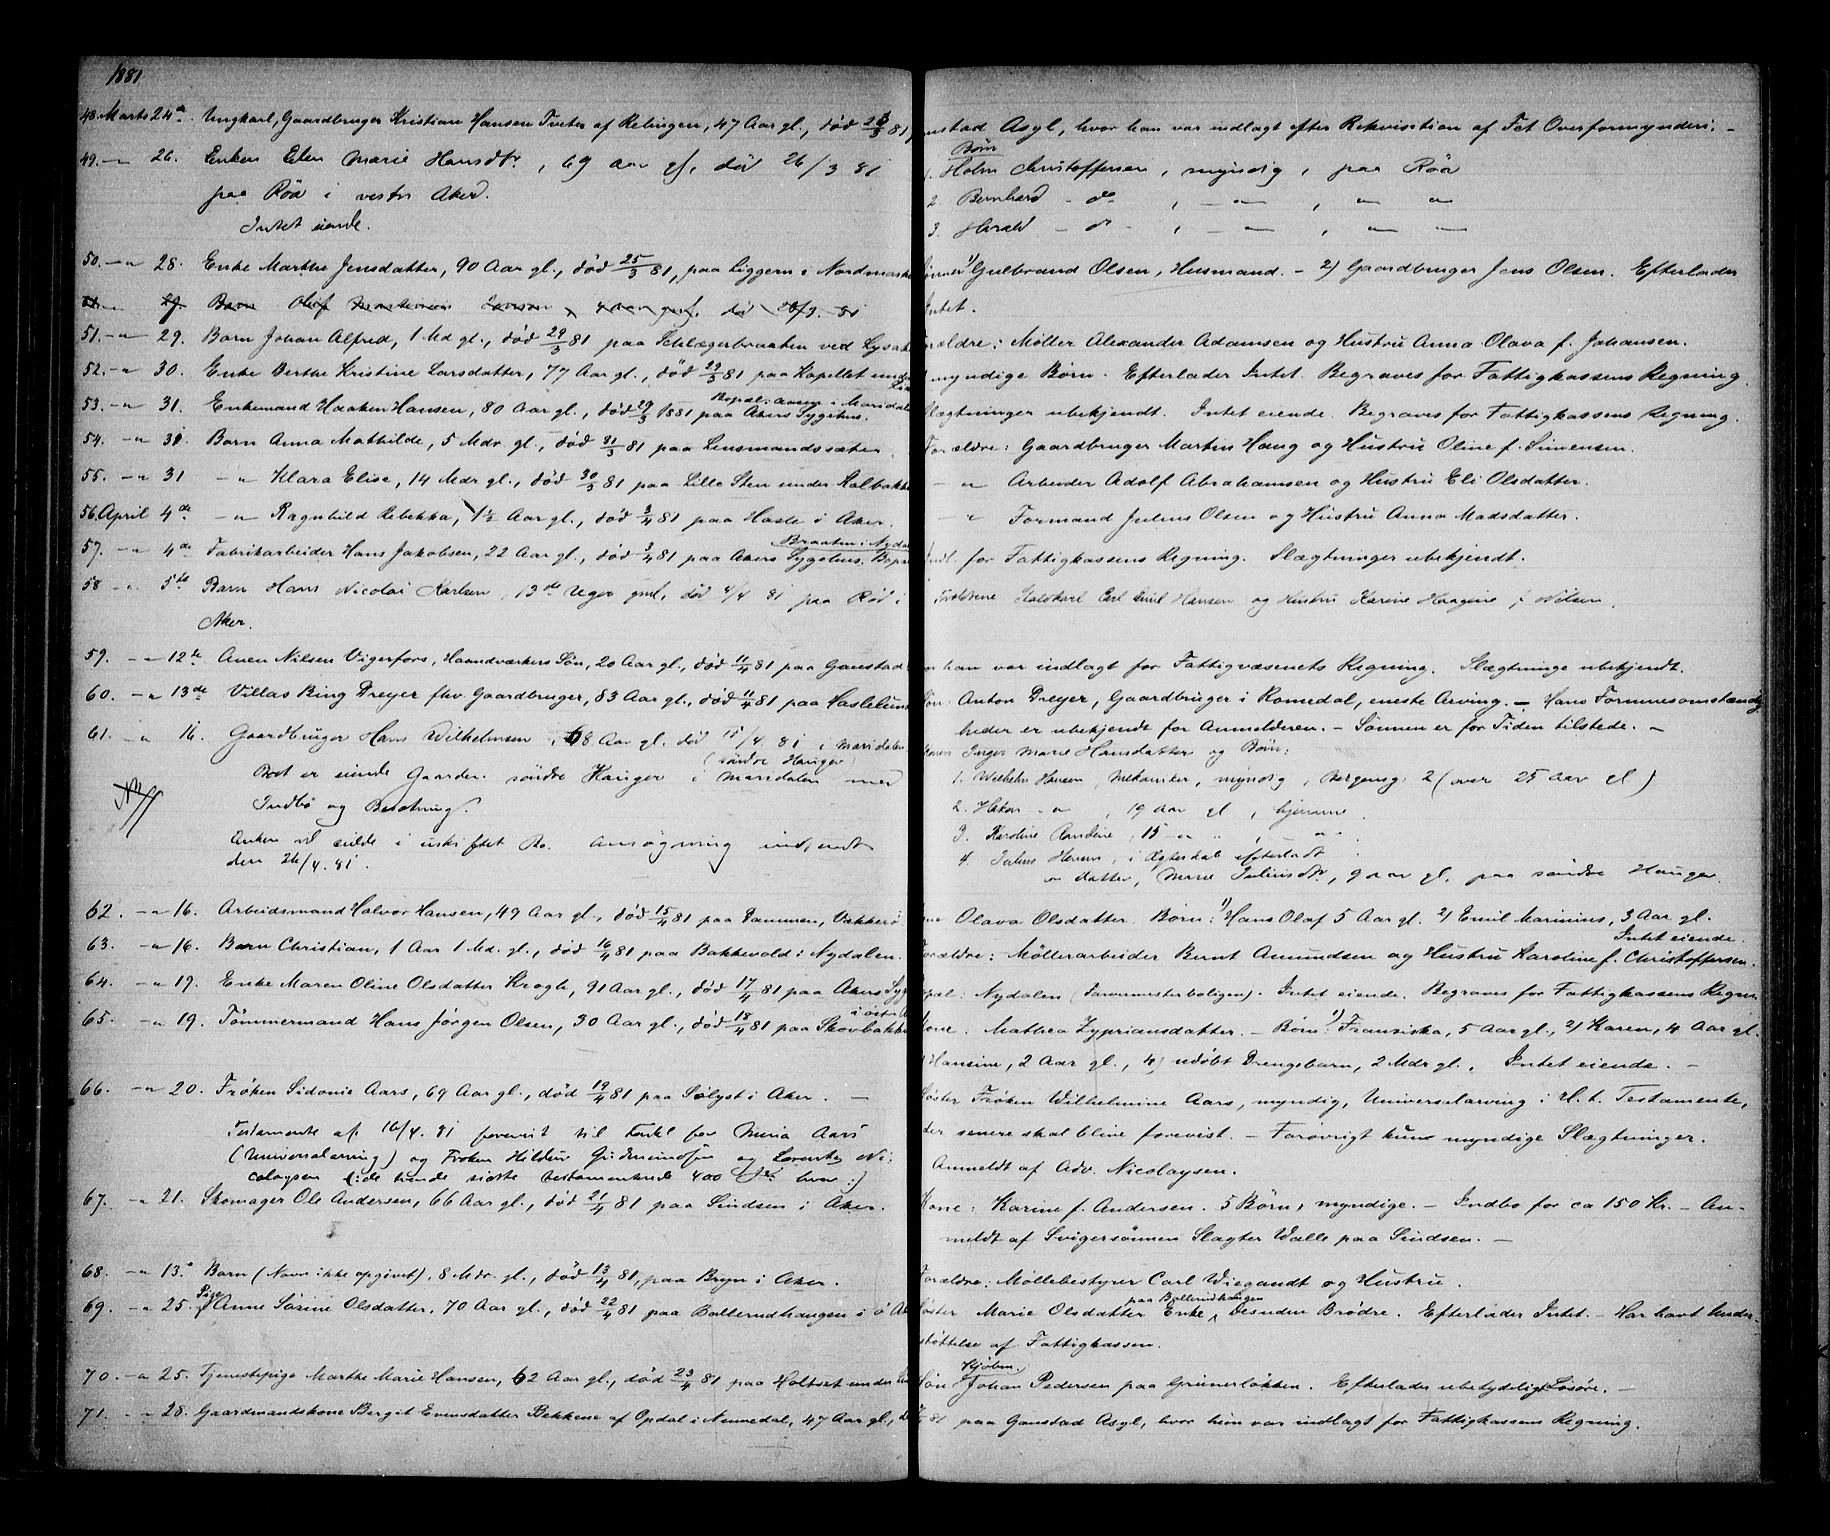 1881
48. Marts 24de Ungkarl, Gaardbruger Kristian Hansen Tveter af Relingen, 47 Aar gl., død 23/3 81,
49. -"- 26. Enken Elen Marie Hansdtr, 69 Aar gl, død 26/3 81
paa Röa i vestre Aker.
Intet eiende.
50. -"- 28. Enke Marthe Jensdatter, 90 Aar gl., død 25/3 81, paa Liggern i Nordmarken
51. -"- 29. Barn Johan Alfred, 1 Md gl., død 29/3 81 paa Schlægerbraaten ved Lysaker
52. -"- 30. Enke Berthe Kristine Larsdatter, 77 Aar gl., død 29/3 81 paa Kapellet under
Bopæl: Aasen i Maridalen
53. -"- 31. Enkemand Haaken Hansen, 80 Aar gl., død 29/3 1881 paa Akers Sygehus.
54. -"- 31. Barn Anna Mathilde, 5 Mdr. gl., død 31/3 81 paa Lensmandssæter.
55. -"- 31 -"- Klara Elise, 14 Mdr gl., død 30/3 81 paa Lille Sten under Kalbakken
56. April 4de -"- Ragnhild Rebekka, 1½ Aar gl., død 3/4 81 paa Hasle i Aker.
Braaten i Nydalen
57. -"- 4de Fabrikarbeider Hans Jakobsen, 22 Aar gl., død 3/4 81 paa Akers Sygehus. Bopæl
58 -"- 5te Barn Hans Nicolai Karlsen, 13de Uger gml, død 4/4 81 paa Röd i
Aker.
59. -"- 12te Anen Nilsen Vigerfors, Haandværkers Søn, 20 Aar gl., død 11/4 81 paa Gaustad
60. -"- 13de Villas Bing Dreyer fhv. Gaardbruger, 83 Aar gl., død 11/4 81 paa Haslelund
61. -"- 16. Gaardbruger Hans Wilhelmsen, 68 Aar gl. død 15/4 81 i Maridalen
(söndre Hauger)
Boet er eiende Gaarden söndre Hauger i Maridalen med
NB
Indbo og Besetning.
Enken vil sidde i uskiftet Bo. Ansøgning indsendt
den 26/4. 81.
62. -"- 16. Arbeidsmand Halvor Hansen, 49 Aar gl., død 15/4 81 paa Dammen, Vækkerö
63. -"- 16. Barn Christian, 1 Aar 1 Md. gl., død 16/4 81 paa Bakkevold i Nydalen.
64. -"- 19. Enke Maren Oline Olsdatter Krogh, 91 Aar gl., død 17/4 81 paa Akers Syg
i østre A
65. -"- 19. Tömmermand Hans Jørgen Olsen, 30 Aar gl., død 18/4 81 paa Skovbakken
66. -"- 20. Frøken Sidonie Aars, 69 Aar gl., død 19/4 81 paa Sølyst i Aker. —
Testamente af 16/4. 81 forevist til Fordel for Minna Aars
(Universalarving) og Frøken Hildur Gudmundsen og Lorentze Ni:
colaysen (:de tvende sidste testamenterede 400 Kr hver:)
67. -"- 21. Skomager Ole Andersen, 66 Aar gl., død 21/4 81 paa Sindsen i Aker.
68. -"- 13. Barn (Navn ikke opgivet), 8 Mdr. gl., død 13/4 81, paa Bryn i Aker.
69. -"- 25. Pige Anne Sørine Olsdatter, 70 Aar gl., død 22/4 81 paa Ballerudhaugen i ø Ak
70. -"- 25. Tjenestepige Marthe Marie Hansen, 62 Aar gl., død 23/4 81 paa Holtset under
71. -"- 28. Gaardmandskone Bergit Evensdatter Bekkene af Opdal i Numedal, 47 Aar gl., d
nstad Asyl, hvor han var indlagt efter Rekvisition af Fet Overformynderi. —
Børn
1. Holm Christoffersen, myndig, paa Röa
2. Bernhard - do , -"- , " "
3. Harald - do - , -"- , " —
Sönner 1) Gulbrand Olsen, Husmand. - 2) Gaardbruger Jens Olsen. Efterlader
Intet.
Forældre: Møller Alexander Adamsen og Hustru Anna Olava f. Johansen.
myndige Børn. Efterlader Intet. Begraves for Fattigkassens Regning.
Slægtninger ubekjendt. Intet eiende. Begraves for Fattigkassens Regning.
Forældre: Gaardbruger Martin Haug og Hustru Oline f. Simensen.
-"- Arbeider Adolf Abrahamsen og Hustru Eli Olsdatter.
-"- Formand Julius Olsen og Hustru Anna Madsdatter.
Indl. for Fattigkassens Regning. Slægtninger ubekjendt.
Forældrene Staldkarl Carl Emil Hansen og Hustru Karine Haagine f. Nilsen.
en han var indlagt for Fattigvæsenets Regning. Slægtninge ubekjendt.
Søn: Anton Dreyer, Gaardbruger i Romedal, eneste Arving. — Hans Formuesomstændig
heder er ubekjendt for Anmelderen. — Sønnen er for Tiden tilstede. —
Konen Inger Marie Hansdatter og Børn:
1. Wilhelm Hansen, Mekaniker, myndig, Bergensg: 2 (over 25 Aar gl)
2. Hakon -"- , 19 Aar gl, hjemme.
3. Karoline Randine, 15 -"- " , -"-
4. Julius Hansen, i Ægteskab efterladt
en datter, Marie Juliusdtr, 9 Aar gl. paa söndre Hauger.
ne Olava Olsdatter. Børn: 1) Hans Olaf 5 Aar gl. 2) Emil Marinius, 3 Aar gl.
Intet eiende.
Forældre: Møllerarbeider Bernt Amundsen og Hustru Karoline f. Christoffersen.
Bopæl: Nydalen (Farvermesterboligen). Intet eiende. Begraves for Fattigkassens Regning
Kone: Mathea Zypriansdatter. — Børn: 1) Fransiska, 5 Aar gl., 2) Karen, 4 Aar gl.
Hansine, 2 Aar gl., 4) udøbt Drengebarn, 2 Mdr gl., Intet eiende. —
Søster Frøken Wilhelmine Aars, myndig, Universalarving i H. t. Testamente,
der senere skal blive forevist. — Forøvrigt kun myndige Slægtninger.
Anmeldt af Adv. Nicolaysen.
Kone: Karine f. Andersen. 5 Børn, myndige. — Indbo for ca 150 Kr. — An-
meldt af Svigersønnen Slagter Walle paa Sindsen. —
Forældre: Møllebestyrer Carl Wiegandt og Hustru.
paa Ballerudhaugen
Søster Marie Olsdatter Enke, Desuden Brødre. Efterlader Intet. — Har havt Under-
støttelse af Fattigkassen.
Kjøbm.
Søn Johan Pedersen paa Grünerløkken. Efterlader ubetydeligt Løsøre. —
81 paa Gaustad Asyl, hvor hun var indlagt for Fattigkassens Regning.